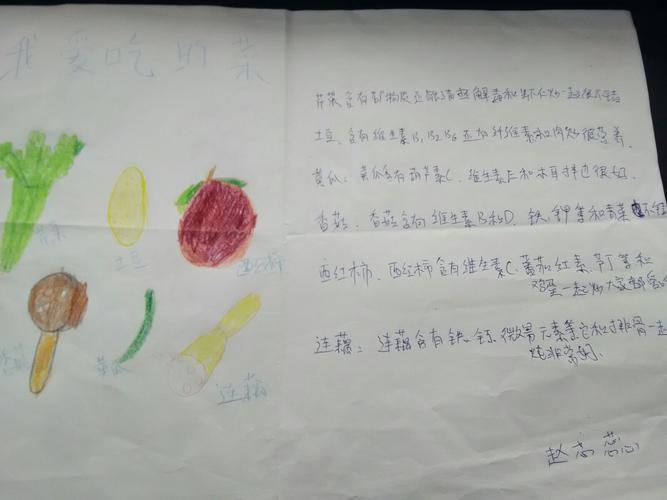 我爱吃的菜
芹菜
土豆
西红柿
香菇
黄瓜
连藕
芹菜含有矿物质还能清热解毒和虾仁炒一起很不错
土豆、含有维生素B1,B2,B6还有纤维素和肉炒很营养、
黄瓜:黄瓜含有葫芦素C、维生素E和木耳拌也很好、
香菇、香菇含有维生素B和D、铁、钾等和青菜
西红柿、西红柿含有维生素C、蕃茄红素、芦丁等和
鸡蛋一起炒大家都爱吃
连藕:连藕含有铁、钙、微量元素等它和排骨一起
炖非常好、
赵 蕊